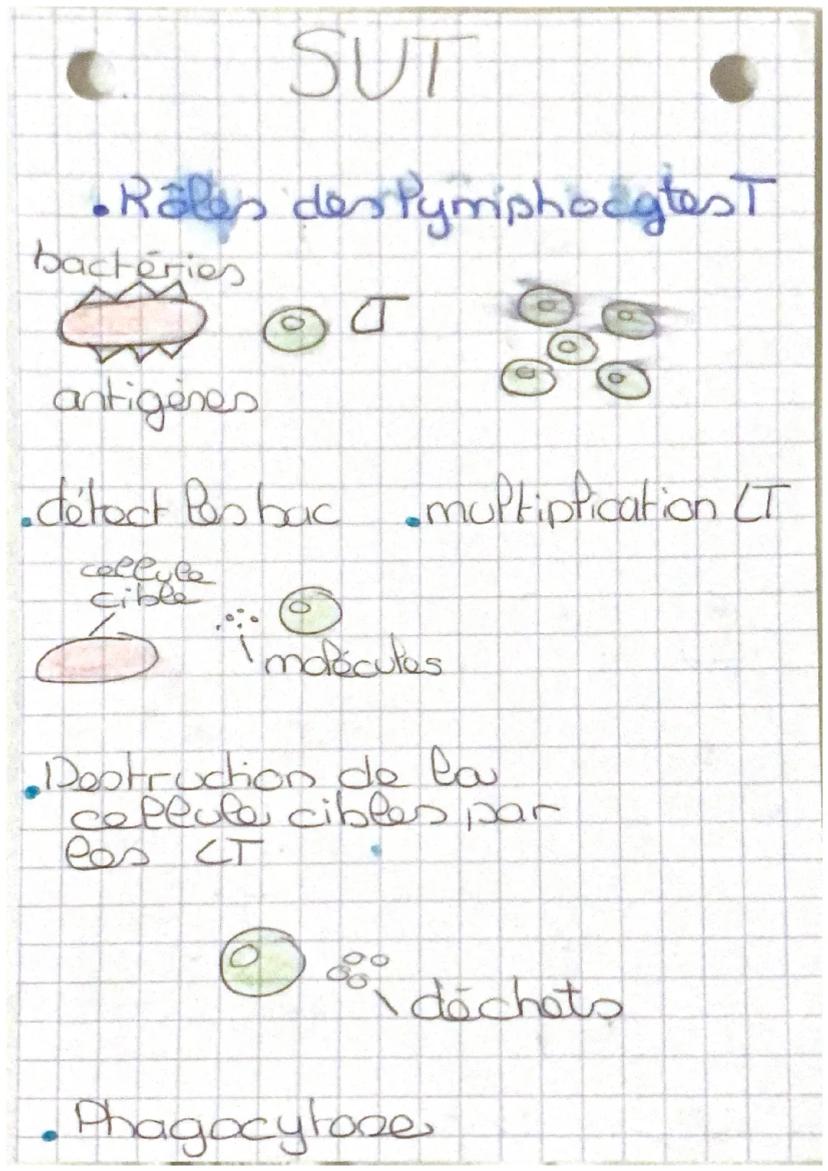 SVT
.Rôles des lymphocytes T
bactéries
LT
antigènes
.détect les bac
.multiplication LT
cellule
cible
molécules
.Destruction de la
cellule cibles par
les LT
déchets
. Phagocytose